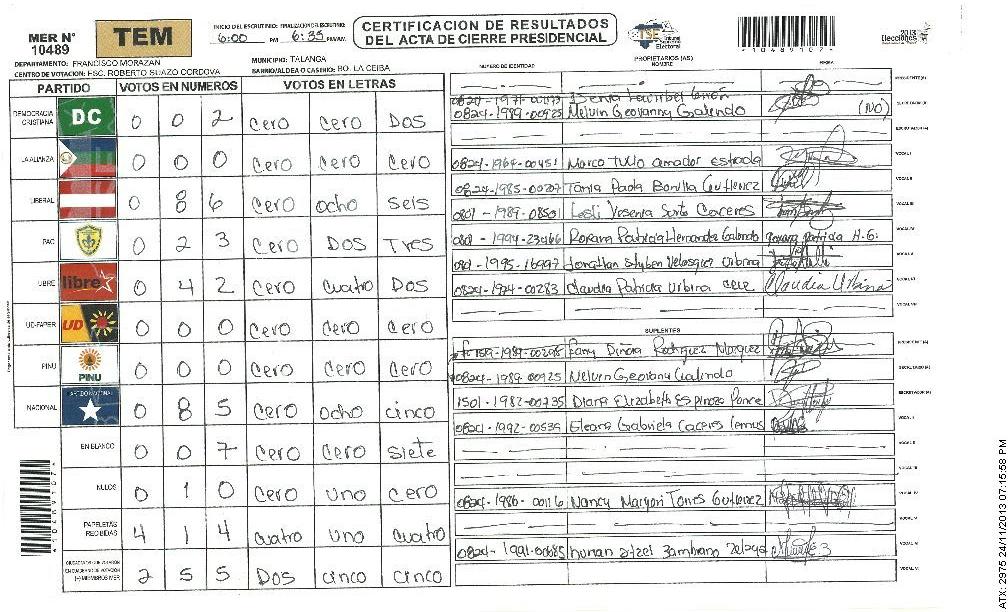 MER N° 10489
TEM
INICIO DEL ESCRUTINIO: 6:00 PM FINALIZACION DEL ESCRUTINIO: 6:35
CERTIFICACION DE RESULTADOS
DEL ACTA DE CIERRE PRESIDENCIAL
TSE Tribunal Supremo Electoral
*10489107*
2013 Elecciones
DEPARTAMENTO: FRANCISCO MORAZAN
MUNICIPIO: TALANGA
CENTRO DE VOTACION: ESC. ROBERTO SUAZO CORDOVA
BARRIO/ALDEA O CASERIO: BO. LA CEIBA
PARTIDO VOTOS EN NUMEROS VOTOS EN LETRAS
DEMOCRACIA CRISTIANA DC 0 0 2 Cero Cero Dos
LA ALIANZA 0 0 0 Cero Cero Cero
LIBERAL 0 8 6 Cero ocho seis
PAC 0 2 3 Cero Dos Tres
LIBRE libre 0 4 2 Cero Cuatro Dos
UD-FAPER UD 0 0 0 Cero Cero Cero
PINU PINU 0 0 0 Cero Cero Cero
NACIONAL PARTIDO NACIONAL 0 8 5 Cero ocho cinco
EN BLANCO 0 0 7 Cero Cero siete
NULOS 0 1 0 Cero uno cero
PAPELETAS RECIBIDAS 4 1 4 Cuatro uno cuatro
2 5 5 Dos cinco cinco
*10489107*
NUMERO DE IDENTIDAD PROPIETARIOS (AS) NOMBRE FIRMA
PRESIDENTE(A)
0824-1989-00925 Melvin Geovanny Galindo (NO) SECRETARIO(A)
ESCRUTADOR(A)
0824-1964-00451 Marco Tulio amador estrada VOCAL I
0824-1985-00207 Tania Paola Bonilla Gutierrez VOCAL II
0801-1989-0850 Lesli Yesenia Caceres VOCAL III
1994-23466 Roxana Patricia Hernandez Galindo Roxana patricia H.G. VOCAL IV
1995-16997 Jonathan Velasquez Urbina VOCAL V
0824-1974-00283 Claudia Patricia Urbina Claudia Urbina VOCAL VI
VOCAL VII
SUPLENTES
1519-1989-00298 Fany Dinora Rodriguez Marquez PRESIDENTE(A)
0824-1989-00925 Melvin Geovany Galindo SECRETARIO(A)
1501-1982-00735 Diana Elizabeth Espinoza Ponce ESCRUTADOR(A)
0824-1992-00539 Eleana Gabriela Caceres Lemus VOCAL I
VOCAL II
VOCAL III
0824-1986-00116 Nancy Maryori Torres Gutierrez VOCAL IV
VOCAL V
0824-1991-00685 Zambrano Zelaya VOCAL VI
VOCAL VII
ATX: 2975 24/11/2013 07:15:58 PM